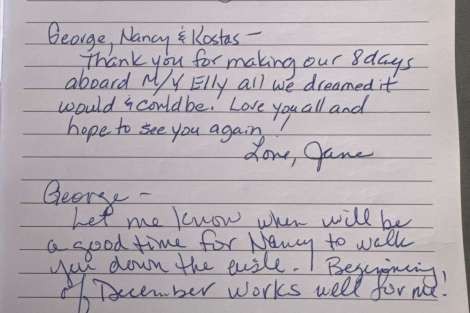 George, Nancy & Kostas —
Thank you for making our 8 days
aboard M/Y Elly all we dreamed it
would & could be. Love you all and
hope to see you again!
Love, Jane
George —
Let me know when will be
a good time for Nancy to walk
you down the aisle. Beginning
of December works well for me!